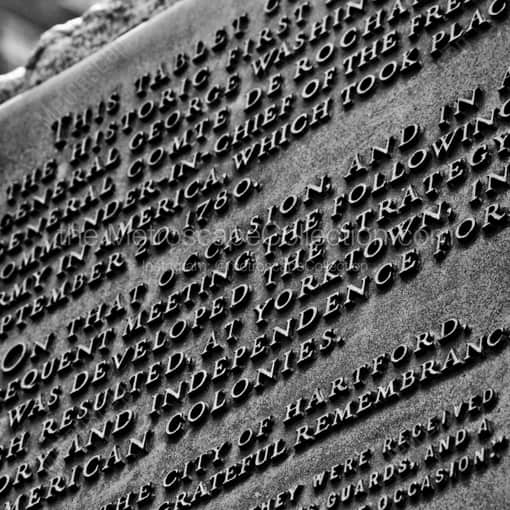 THIS TABLET C
THE HISTORIC FIRST
GENERAL GEORGE WASHIN
GENERAL COMTE DE ROCHAM
OMMANDER-IN-CHIEF OF THE FRE
RMY IN AMERICA, WHICH TOOK PLAC
SEPTEMBER 2 , 1780.
ON THAT OCCASION, AND IN A
SEQUENT MEETING THE FOLLOWING
WAS DEVELOPED THE STRATEGY
CH RESULTED, AT YORKTOWN, IN
ORY AND INDEPENDENCE FOR
MERICAN COLONIES.
THE CITY OF HARTFORD,
GRATEFUL REMEMBRANC
HEY WERE RECEIVED
S GUARDS, AND A
OCCASION."
The MetroscapeCollection.com
Instagram: @MetroscapeCollection